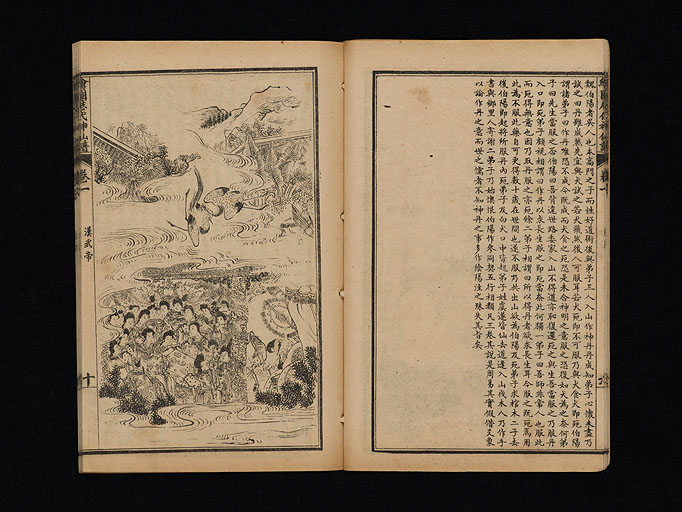 魏伯陽者吳人也本高門之子而性好道術後與弟子三人入山作神丹丹成知弟子心懷未盡乃
試之曰丹雖成然先宜與犬試之若犬飛然後人可服耳若犬死即不可服乃與犬食犬即死伯陽
謂諸弟子曰作丹唯恐不成今既成而犬食之死恐是未合神明之意服之恐復如犬為之奈何弟
子曰先生當服之否伯陽曰吾背違世路委家入山不得道亦恥復還死之與生吾當服之乃服丹
入口即死弟子顧視相謂曰作丹以求長生服之即死當奈此何獨一弟子曰吾師非常人也服此
而死得無意也因乃取丹服之亦死餘二弟子相謂曰所以得丹者欲求長生耳今服之既死焉用
此為不服此藥自可更得數十歲在世間也遂不服乃共出山欲為伯陽及死弟子求棺木二子去
後伯陽即起將所服丹內死弟子及白犬口中皆起弟子姓虞遂皆仙去道逢入山伐木人乃作手
書與鄉里人寄謝二弟子乃始懊恨伯陽作參同契五行相類凡三卷其說是周易其實假借爻象
以論作丹之意而世之儒者不知神丹之事多作陰陽注之殊失其旨矣
繪圖歷代神仙傳
卷一
漢武帝
十